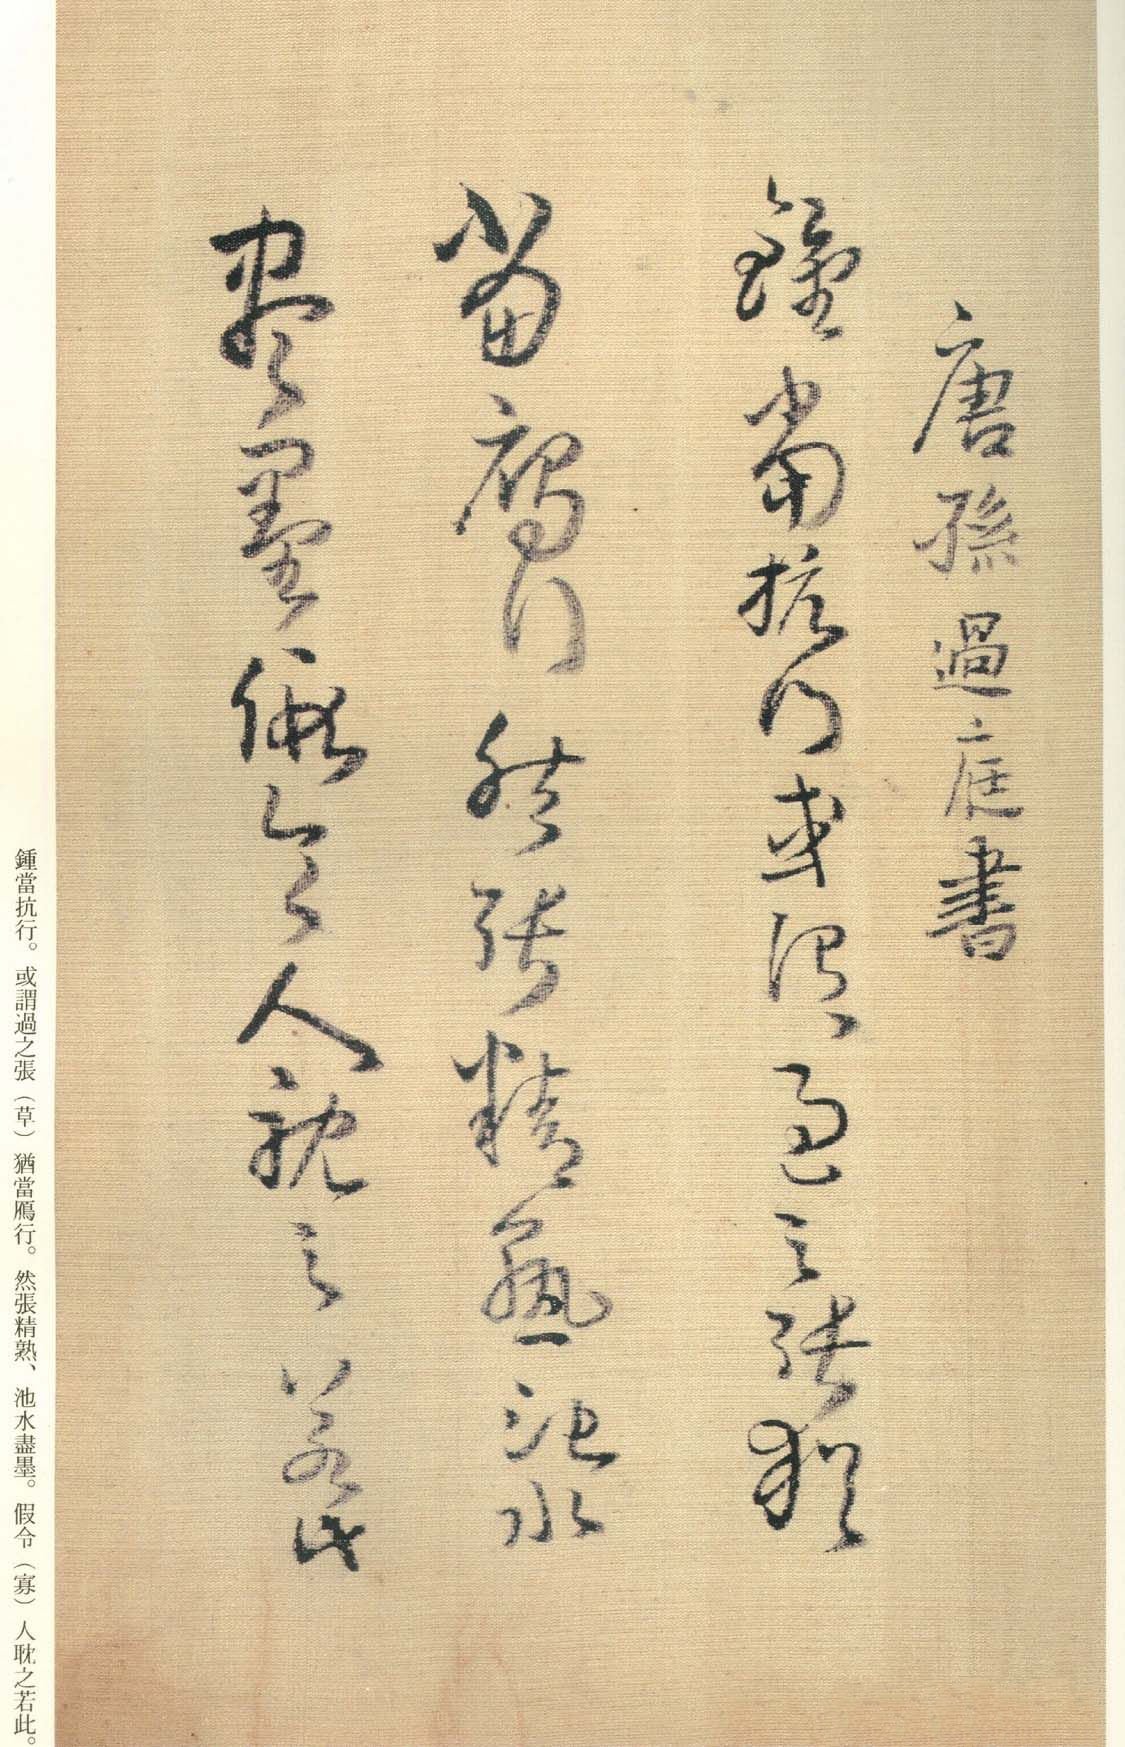 唐孫過庭書
鍾當抗行或謂過之張猶
當鴈行然張精熟池水
盡墨假令人耽之若此
鍾當抗行。或謂過之張（草）猶當鴈行。然張精熟、池水盡墨。假令（寡）人耽之若此。